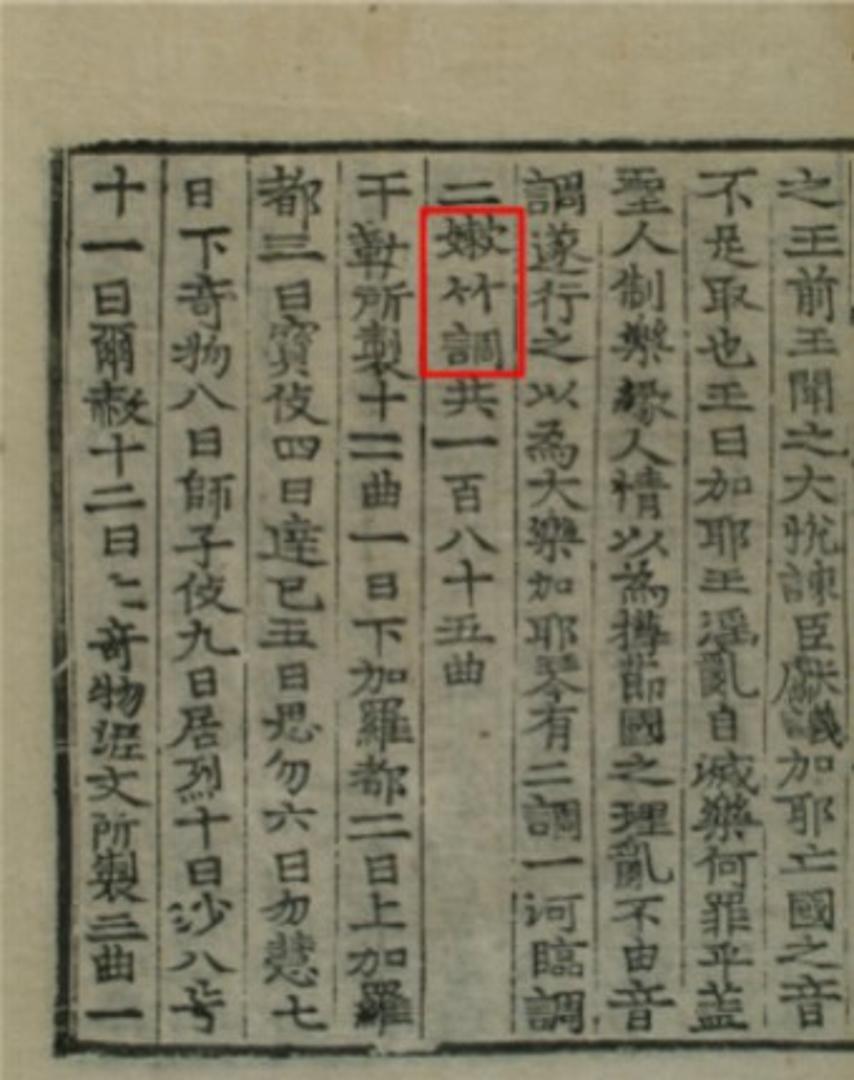 之王前王聞之大恱諫臣獻議加耶亡國之音
不足取也王曰加耶王淫亂自滅樂何罪乎盖
聖人制樂緣人情以爲撙節國之理亂不由音
調遂行之以爲大樂加耶琴有二調一河臨調
二嫩竹調共一百八十五曲
于勒所製十二曲一曰下加羅都二曰上加羅
都三曰寶伎四曰達已五曰思勿六曰勿慧七
曰下奇物八曰師子伎九曰居烈十曰沙八兮
十一曰爾赦十二曰上奇物泥文所製三曲一